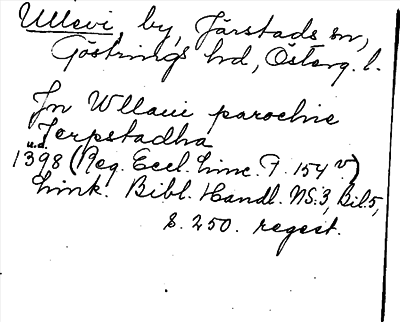 Ullevi, by, Järstads sn,
Göstrings hd, Österg. l.
In Wllaui parochie
Jerpstadha
u.d.
1398 (Reg. Eccl. Linc. F. 154 v)
Link. Bibl. Handl. NS. 3, Bil. 5,
s. 250. regest.